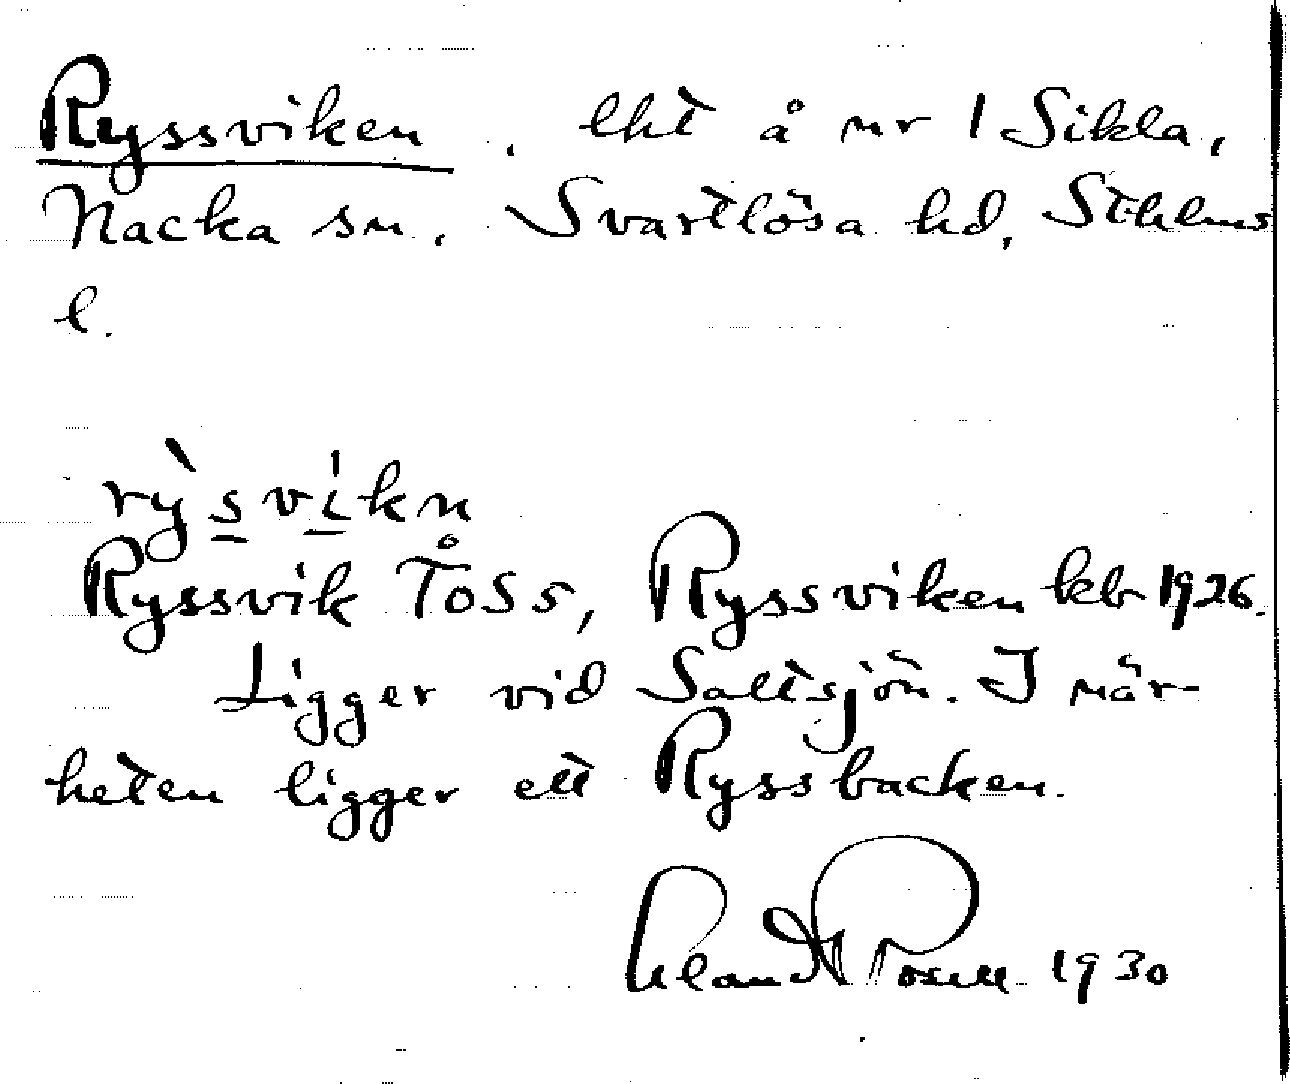 Ryssviken, lht å nr 1 Sikla,
Nacka sn. Svartlösa hd, Sthlms
l.
rỳsvíkn
Ryssvik TOSS, Ryssviken kb 1926.
Ligger vid Saltsjön. I när-
heten ligger ett Ryssbacken.
1930